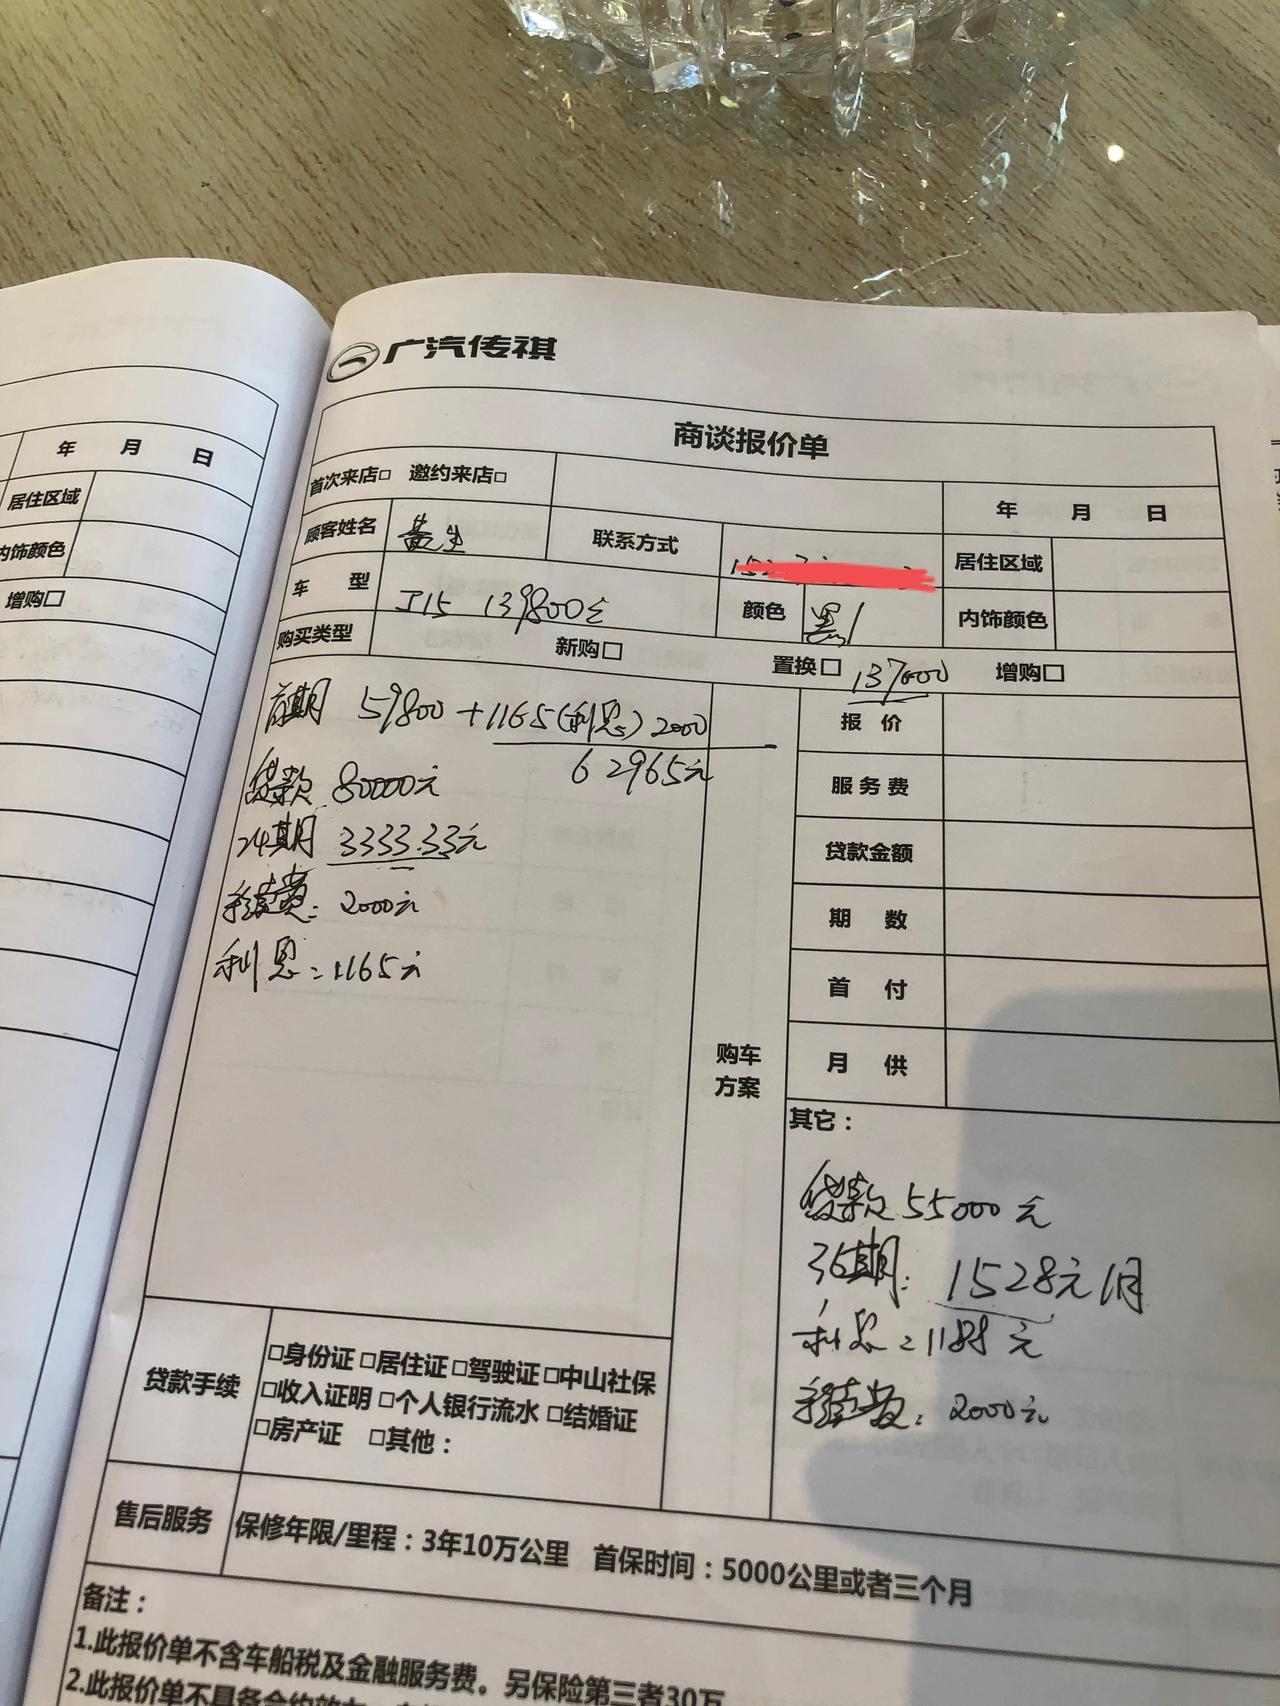 广汽传祺
商谈报价单
年 月 日
居住区域
内饰颜色
增购□
首次来店□ 邀约来店□
年 月 日
顾客姓名 黄生 联系方式 居住区域
车 型 J15 139800元 颜色 黑 内饰颜色
购买类型 新购□ 置换□ 137000 增购□
首期 59800+1165(利息)2000
62965元
贷款 80000元
24期 3333.33元
手续费:2000元
利息:1165元
购车方案
报 价
服务费
贷款金额
期 数
首 付
月 供
其它:
贷款55000元
36期:1528元/月
利息:1188元
手续费:2000元
贷款手续
□身份证 □居住证 □驾驶证 □中山社保
□收入证明 □个人银行流水 □结婚证
□房产证 □其他:
售后服务 保修年限/里程:3年10万公里 首保时间:5000公里或者三个月
备注:
1.此报价单不含车船税及金融服务费。另保险第三者30万
2.此报价单不具备合约效